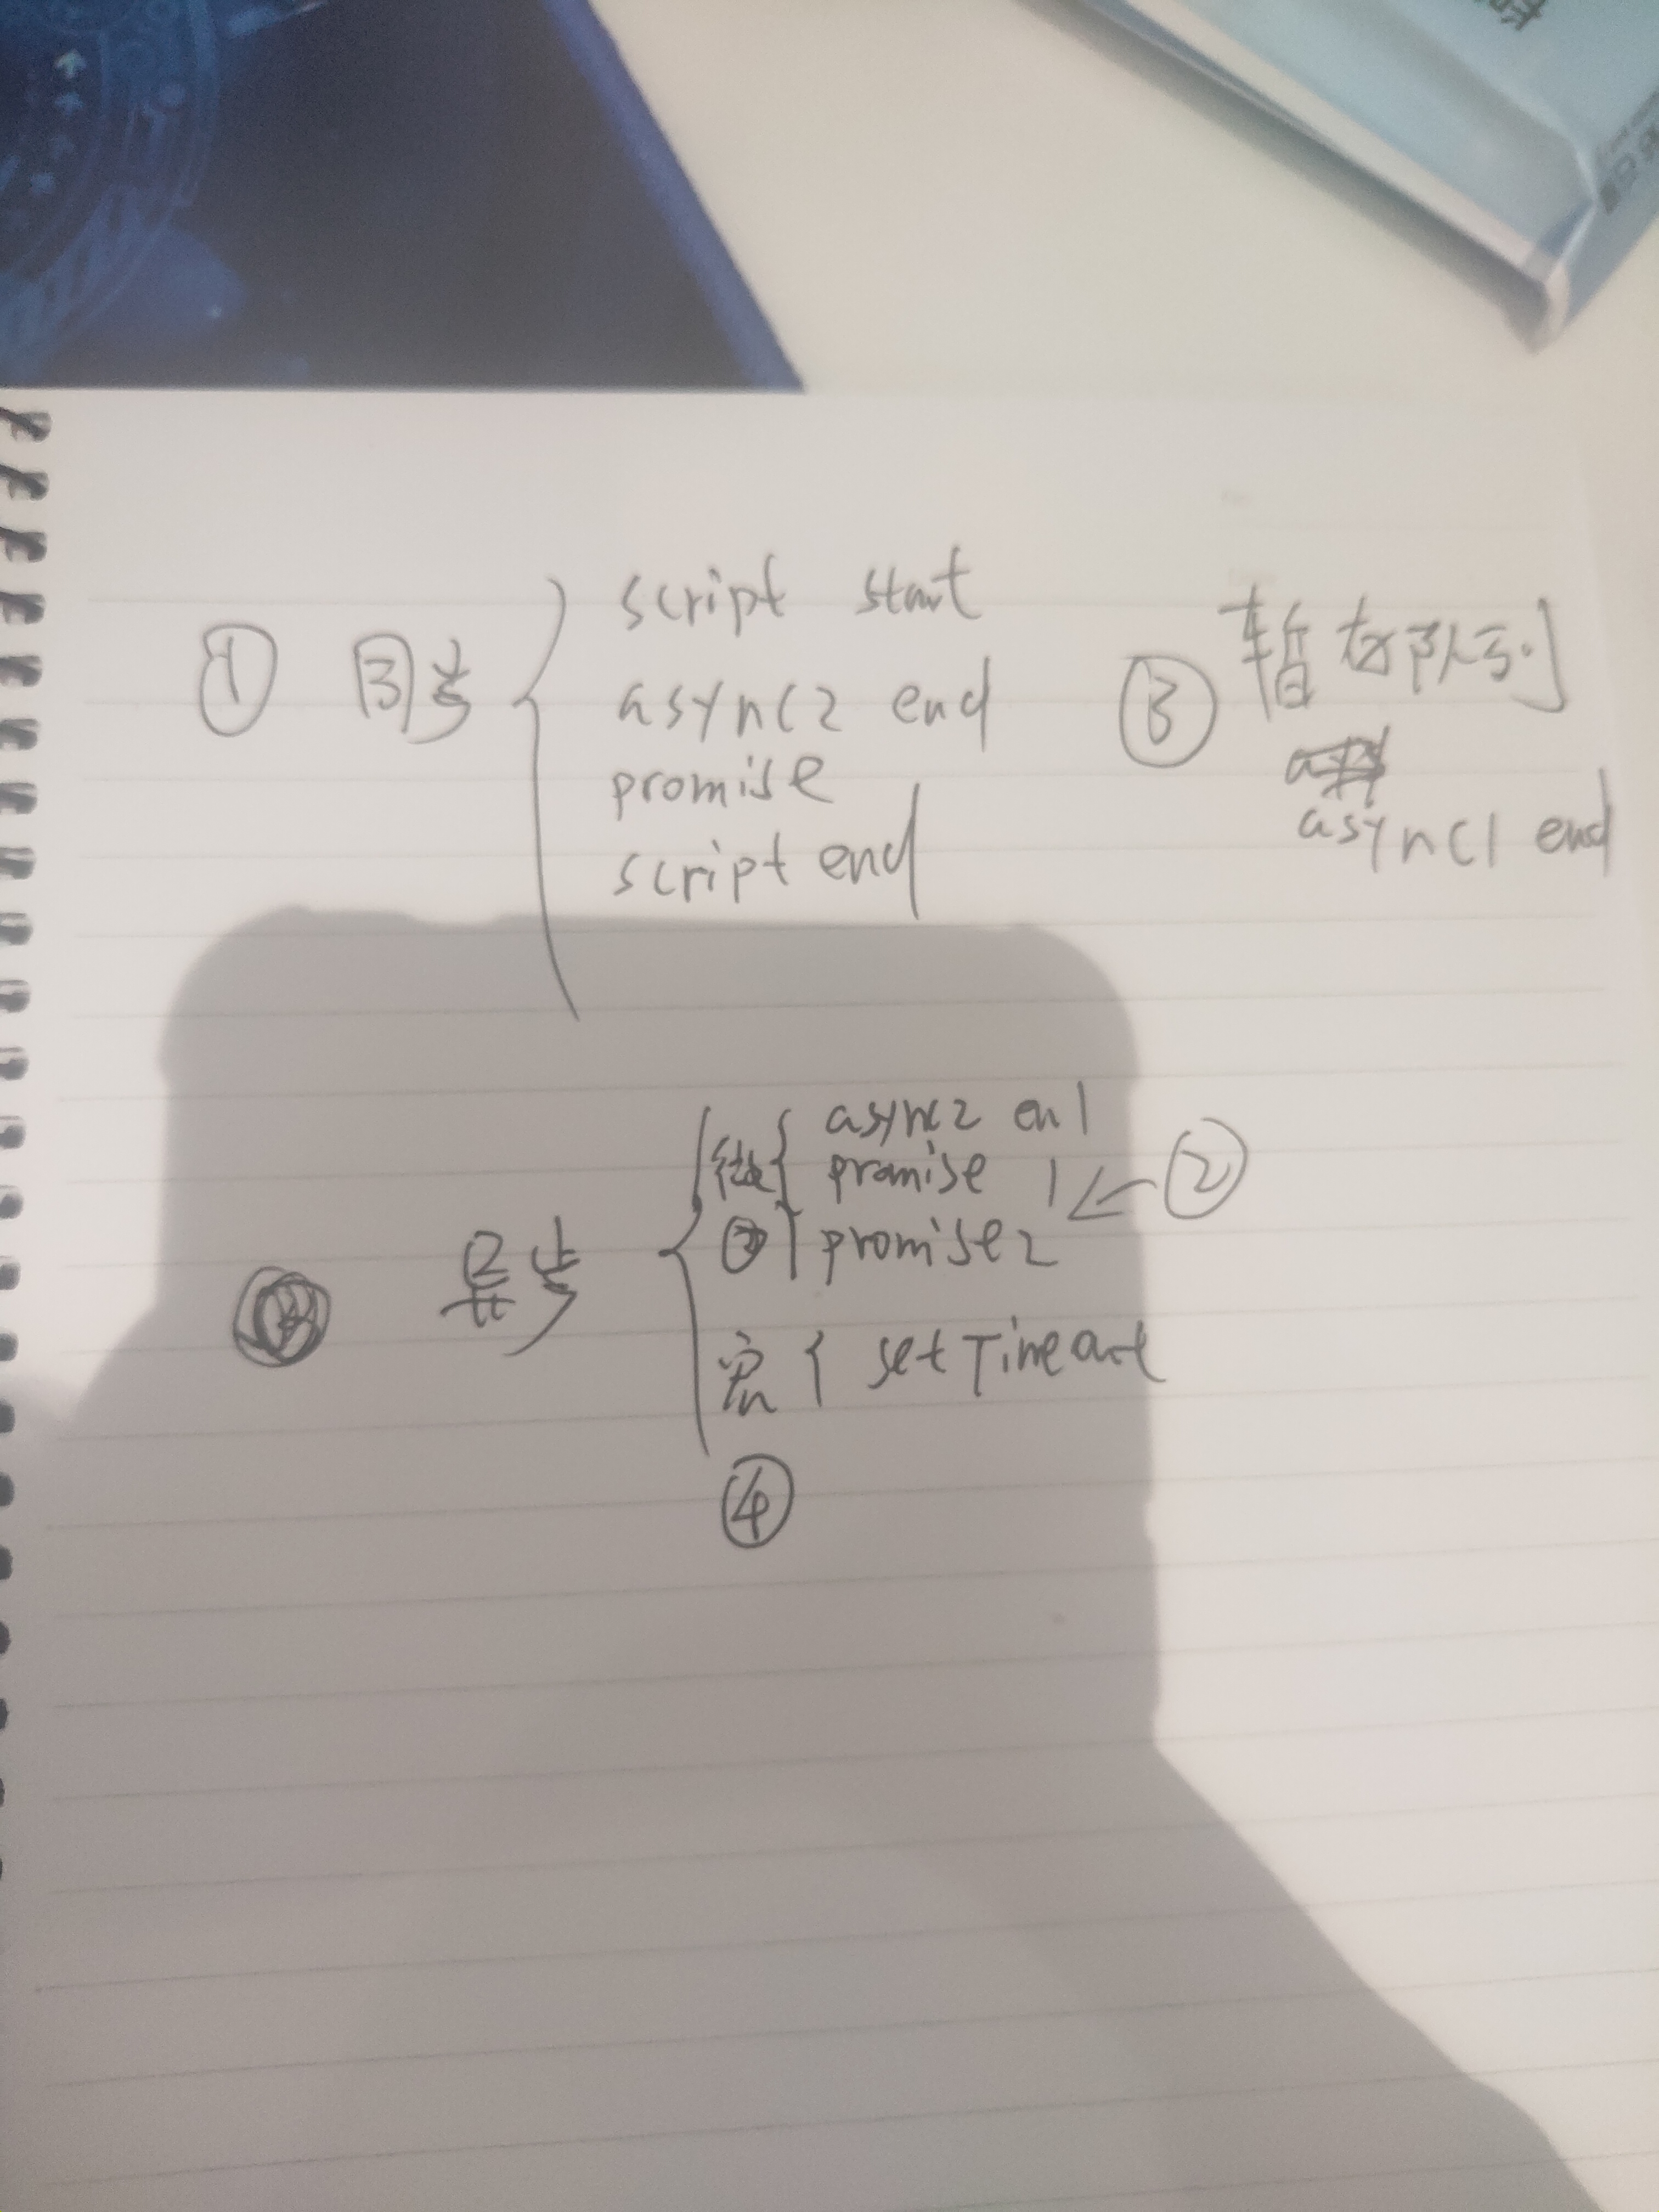 ① 同步 { script start
async2 end
promise
script end
③ 暂存队列
async1 end
异步 {
微 { async2 en1
promise 1 ← ②
promise2
宏 { setTimeout
④